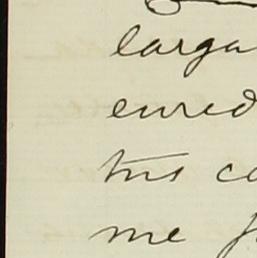 larga
enred
tus co
me f